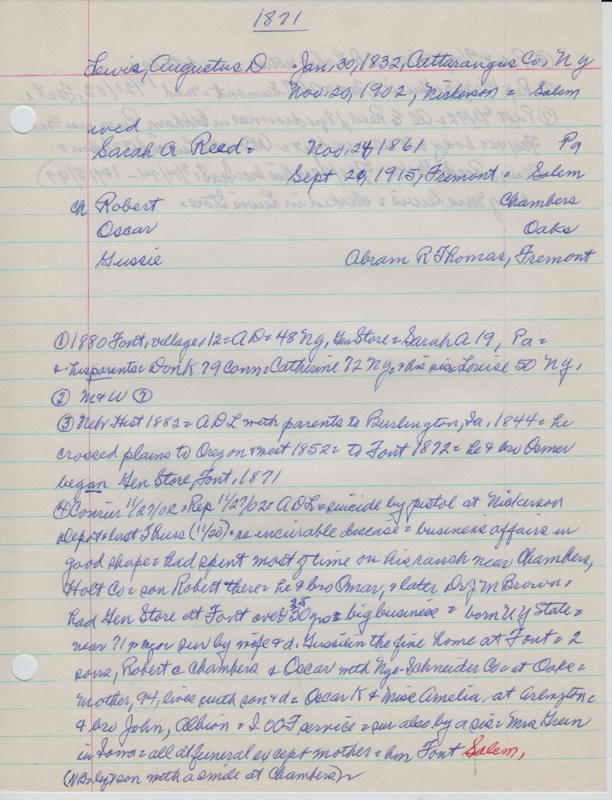 1871
Lewis, Augustus D = Jan, 30, 1832, Cattaraugus Co, N y
Nov. 20, 1902, Nickerson = Salem
wed
Sarah A Reed = Nov, 24, 1861 Pa
Sept 20, 1915, Fremont = Salem
ch Robert Chambers
Oscar Oaks
Gussie Abram R Thomas, Fremont
① 1880 Font, village, 12 = A D = 48 Ny, Gen Store = Sarah A 19, Pa =
& his parents = Don K 79 Conn = Catherine 72 Ny, = his sis Louise 50 Ny,
② M & W ⑦
③ Nebr Hist 1882 = A D L with parents to Burlington, Ia, 1844 = he
crossed plains to Oregon & west 1852 = to Font 1872 = he & bro Osmer
began Gen Store, Font, 1871
④ Courier 11/27/02 = Rep 11/27/02 = A D L = suicide by pistol at Nickerson
Depot = last Thurs (11/20) = incurable disease = business affairs in
good shape = had spent most of time on his ranch near Chambers,
Holt Co = son Robert there = he & bro Omar, & later Dr J M Brown =
had Gen Store at Font over 25 30 yrs = big business = born N Y State =
near 71 = sur by wife & d. Gussie in the fine home at Font = 2
sons, Robert @ Chambers & Oscar with Nye-Schneider Co = at Oaks =
Mother, 94, lives with son & d = Oscar K & Miss Amelia, at Arlington =
& bro John, Albion = I.OOF service = sur also by a sis = Mrs Green
in Iowa = all at funeral except mother = Font Salem,
son with a smile at Chambers)